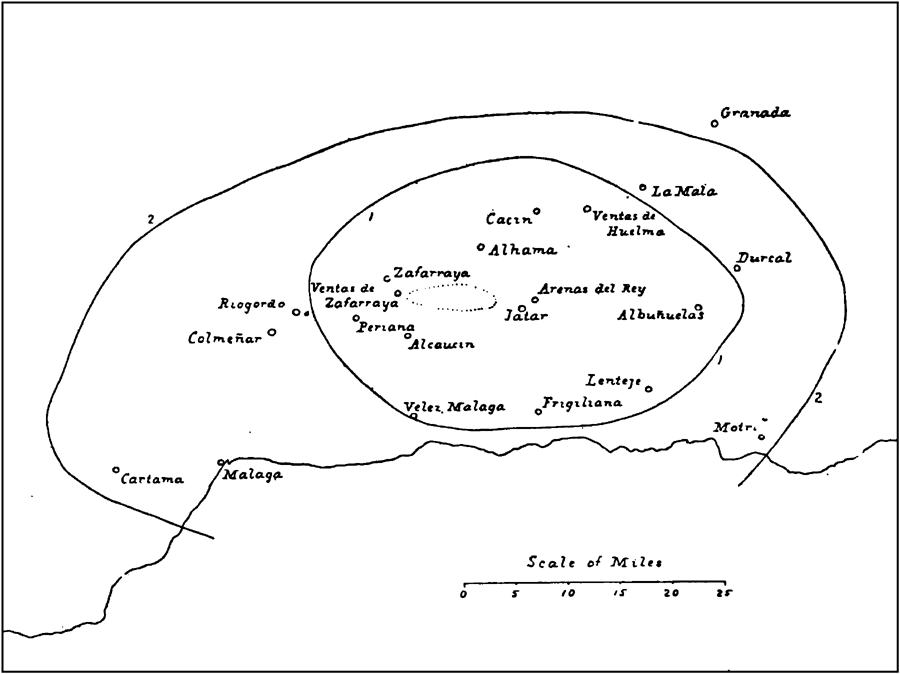 Granada
2
La Mala
1
Cacin
Ventas de
Huelma
Alhama
Durcal
Zafarraya
Ventas de
Zafarraya
Arenas del Rey
Riogordo
Jatar
Albuñuelas
Periana
Colmeñar
Alcaucin
1
Lenteje
2
Velez, Malaga
Frigiliana
Motri
Cartama
Malaga
Scale of Miles
0 5 10 15 20 25